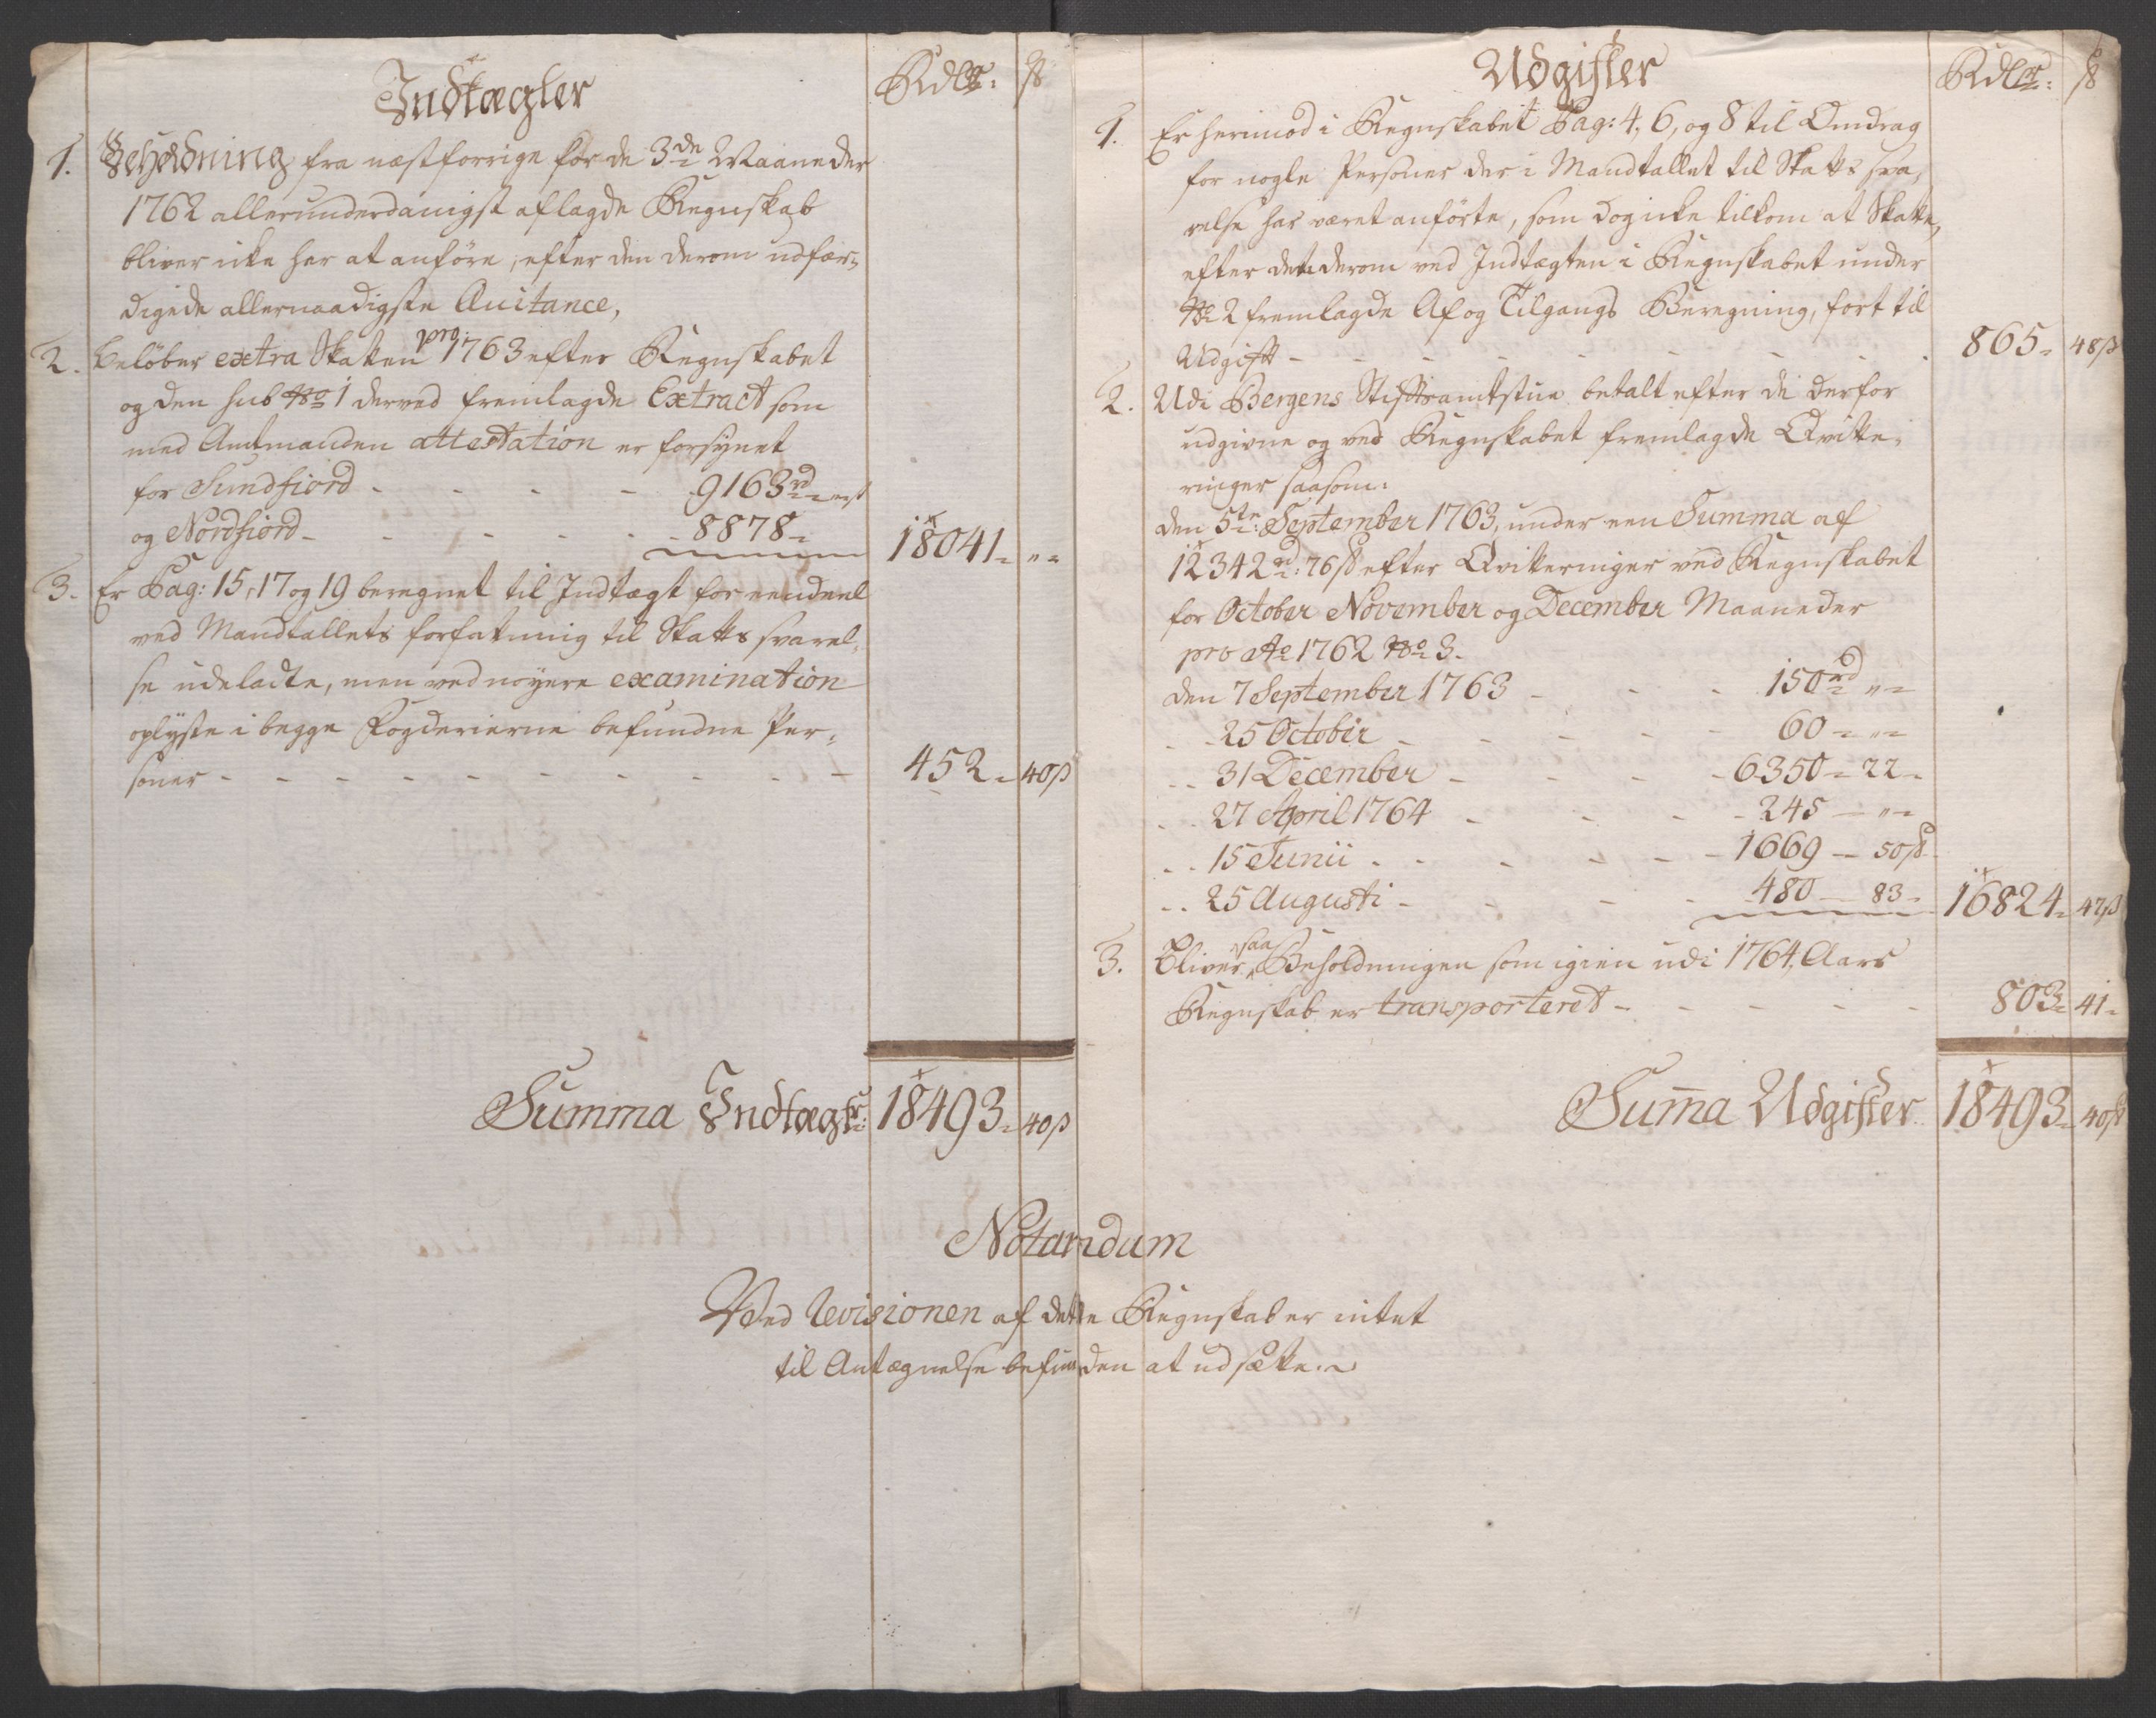 Indtægter
Rdlr: ß
1. Beholdning fra næstforrige for de 3de Maaneder
1762 allerunderdanigst aflagde Regnskab
bliver icke her at anföre, efter den derom udfær-
digede allernaadigste Quitance,
2. Belöber extra Skatten pro 1763 efter Regnskabet
og den sub No 1 derved fremlagde Extract som
med Amtmanden attestation er forsynet
for Sundfiord - - - - 9163rd
og Nordfiord - - - - - 8878 - 18041 - "-
3. Er Pag: 15, 17 og 19 beregnet til Indtægt for eendeel
ved Mandtallets forfatning til Skatts svarel-
se udeladte, men ved noyere examination
oplyste i begge Fogderierne befundne Per-
soner - - - - - - - - - - 452 - 40ß
Summa Indtægtr: 18493 - 40ß
Udgifter
Rdlr: ß
1. Er herimod i Regnskabet Pag: 4, 6, og 8 til Omdrag
for nogle Personer der i Mandtallet til Skatts sva,
relse har været anförte, som dog icke tilkom at Skatte,
efter det derom ved Indtægten i Regnskabet under
No 2 fremlagde Af og Tilgangs Beregning, fort til
Udgift - - - - - - - - 865 - 48ß
2. Udi Bergens Stiftamtstue betalt efter de derfor
udgivne og ved Regnskabet fremlagde Qvitte-
ringer saasom:
den 5te September 1763, under een Summa af
12342rd: 76ß efter Qvitteringer ved Regnskabet
for October November og December Maaneder
pro Ao 1762 No 3.
den 7 September 1763 - - - 150rd "-
- - 25 October - - - - - 60 - "-
- - 31 December - - - - 6350 - 22 -
- - 27 April 1764 - - - - 245 - "-
- - 15 Junii - - - - - - 1669 - 50ß
- - 25 Augusti - - - - 480 - 83 - 16824 - 47ß
3. Bliver saa Beholdningen som igien udi 1764 Aars
Regnskab er transporteret - - - - - 803 - 41 -
Suma Udgifter 18493 - 40ß
Notandum
Ved Revisionen af dette Regnskab er intet
til Antægnelse befunden at udsætte.